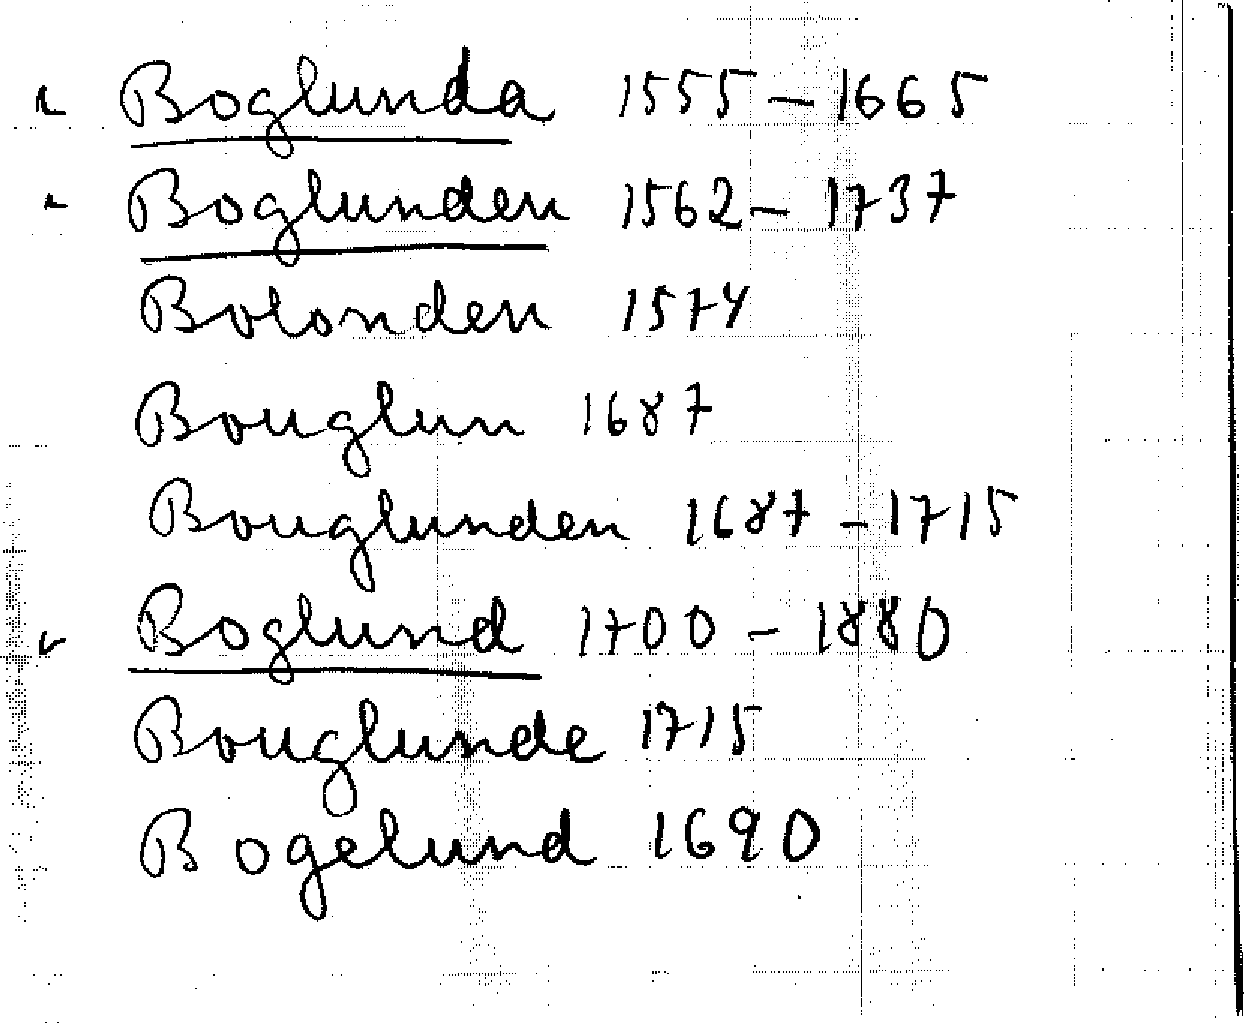 Boglunda 1555 - 1665
Boglunden 1562 - 1737
Bolonden 1574
Bouglun 1687
Bouglunden 1687 - 1715
Boglund 1700 - 1880
Bouglunde 1715
Bogelund 1690